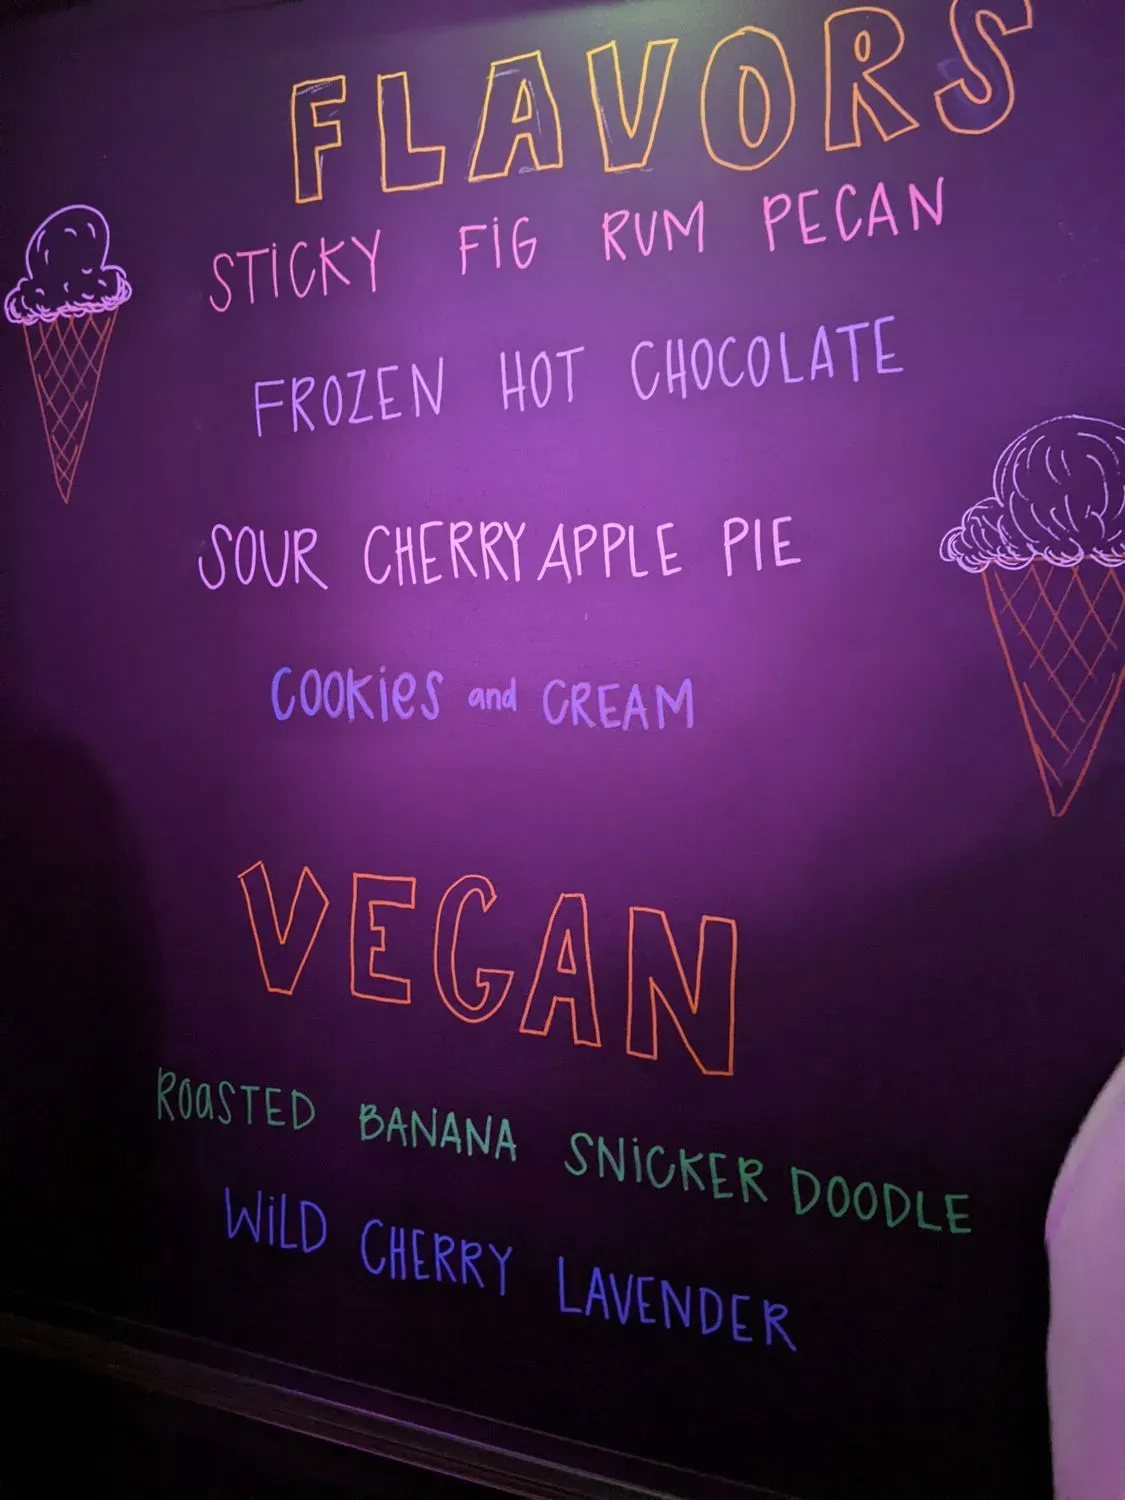 FLAVORS
STiCKY FiG RUM PECAN
FROZEN HOT CHOCOLATE
SOUR CHERRY APPLE PIE
COOKies and CREAM
VEGAN
ROaSTED BANANA SNiCKER DOODLE
WiLD CHERRY LAVENDER